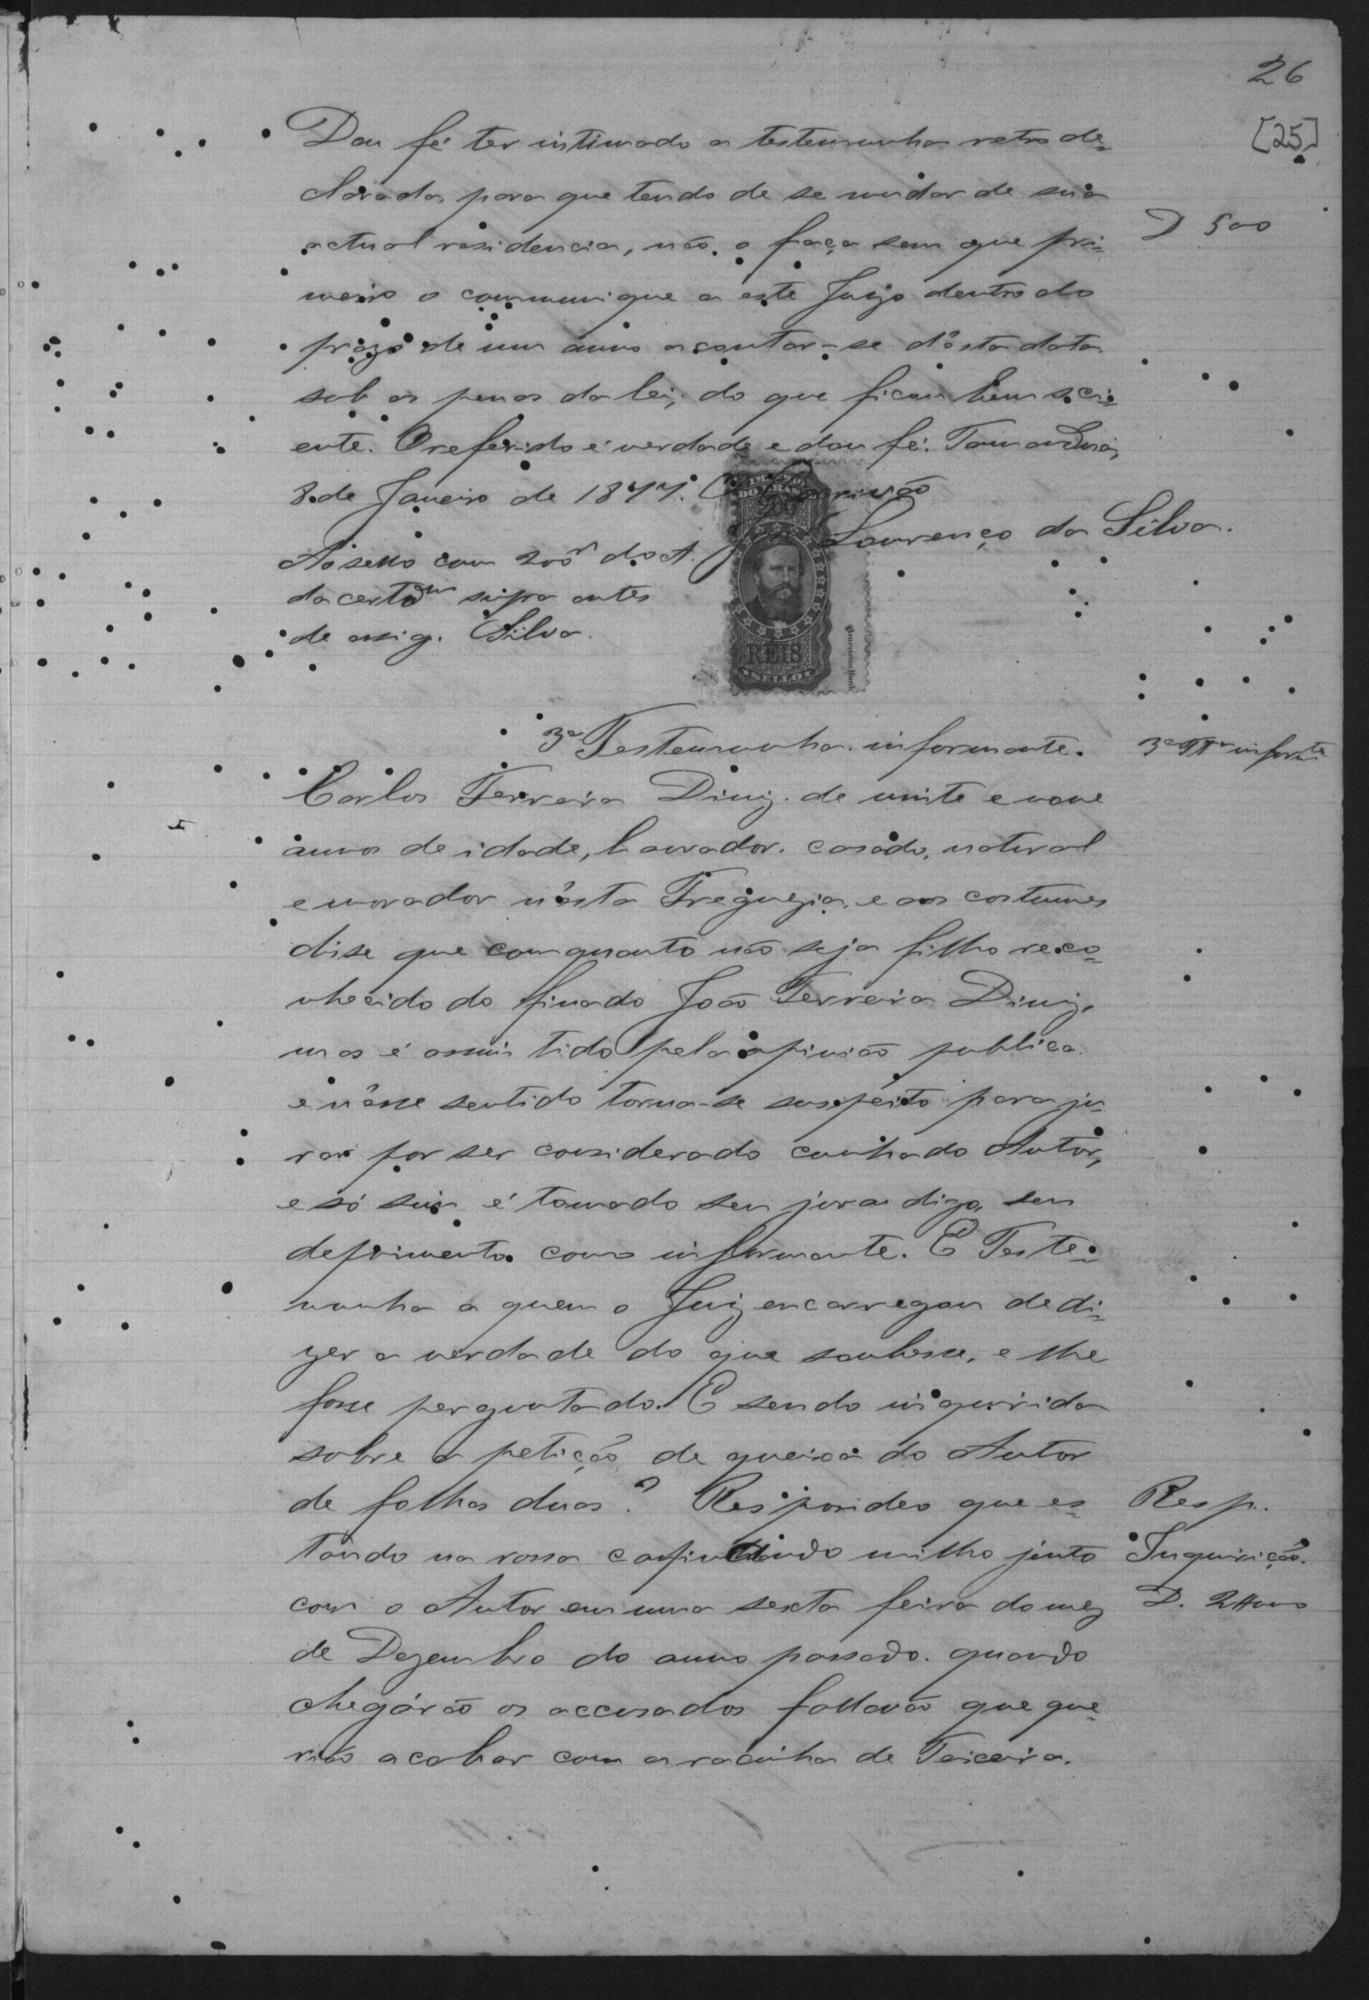 26
[25]
Dou fé ter intimado a testemunha retro de-
clarada, para que tendo de se mudar de sua
actual residencia, não o faça sem que pri-
meiro o communique a este Juizo dentro do
prazo de um anno a contar-se d'ésta data
sob as penas da lei; do que ficou bem sci-
ente. O referido é verdade e dou fé. Tamanduá,
8 de Janeiro de 1877. O Escrivão
Lourenço da Silva.
D 500
A sello com 200 r do A.
da certam supra antes
de assig. Silva.
IMPERIO DO BRASIL
200
REIS
SELLO
3ª Testemunha informante.
3ª Tta informte
Carlos Ferreira Diniz. de vinte e nove
annos de idade, lavrador. casado, natural
e morador n'ésta Freguezia, e aos costumes
disse que comquanto não seja filho reco-
nhecido do finado João Ferreira Diniz,
mas é assim tido pela opinião publica
e n'ésse sentido torna-se suspeito para ju-
rar por ser considerado cunhado Autor,
e só sim é tomado seu jura digo, seu
depoimento como informante. E Teste-
munha a quem o Juiz encarregou de di-
zer a verdade do que soubesse, e lhe
fosse perguntado. E sendo inquirida
sobre a petição de queixa do Autor
de folhas duas? Respondeo que es-
tando na rossa capinando milho junto
com o Autor em uma sexta feira do mez
de Dezembro do anno passado. quando
chegárão os accusados fallavão que que-
rião acabar com a racinha de Teixeira.
Resp.
Inquirição.
D. 2#000